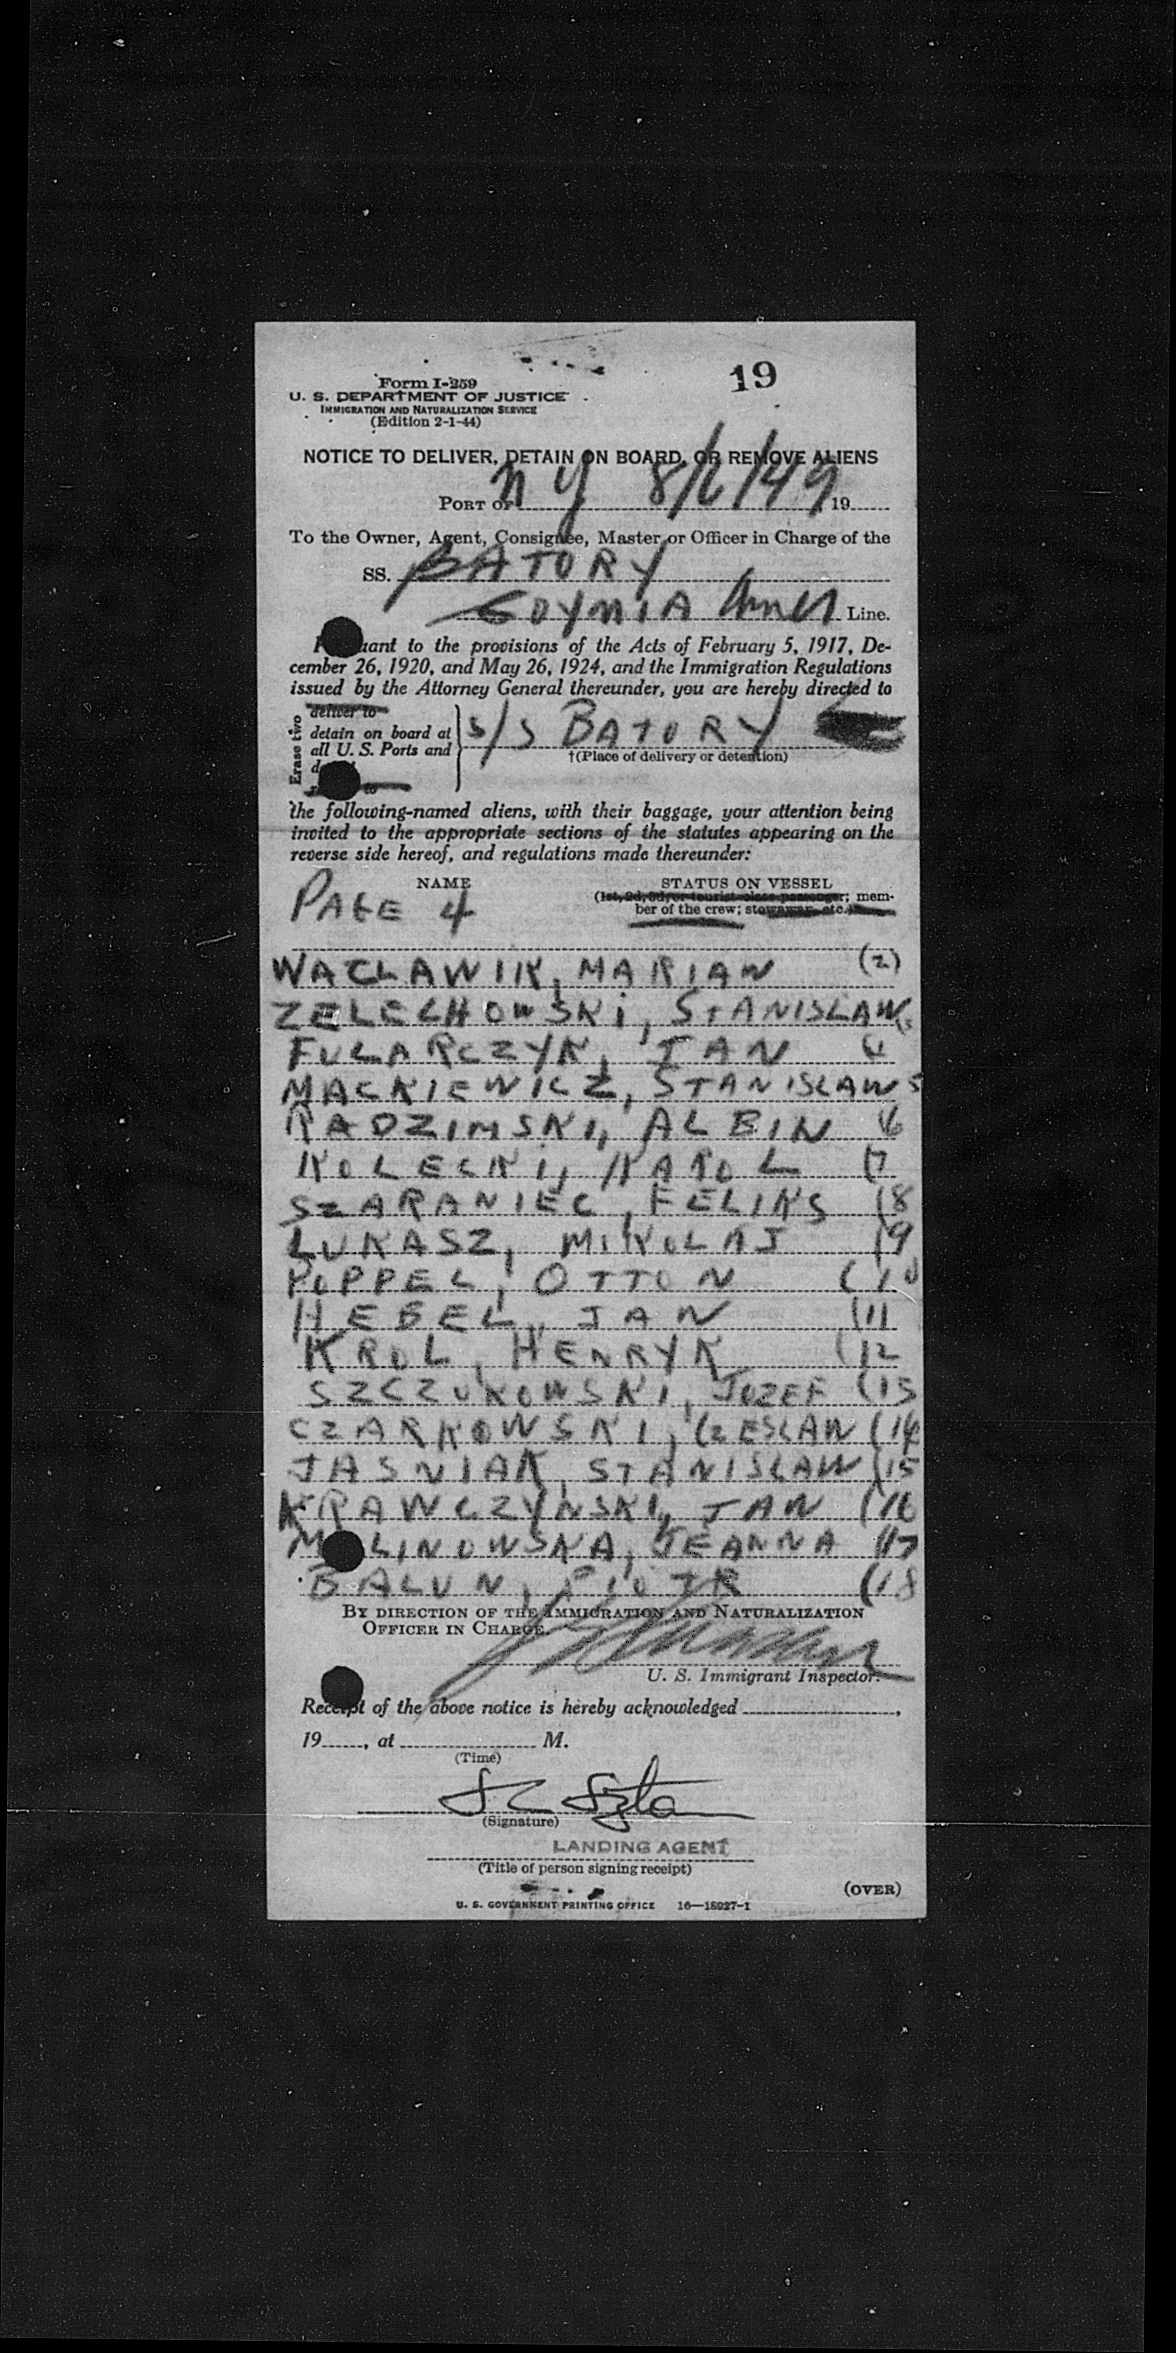 19
Form I-259
U. S. DEPARTMENT OF JUSTICE
IMMIGRATION AND NATURALIZATION SERVICE
(Edition 2-1-44)
NOTICE TO DELIVER, DETAIN ON BOARD, OR REMOVE ALIENS
PORT OF N Y 8/6/49 19
To the Owner, Agent, Consignee, Master or Officer in Charge of the
SS. BATORY
GDYNIA Amer Line.
Pursuant to the provisions of the Acts of February 5, 1917, De-
cember 26, 1920, and May 26, 1924, and the Immigration Regulations
issued by the Attorney General thereunder, you are hereby directed to
Erase two
deliver to
detain on board at
all U. S. Ports and
S/S BATORY
†(Place of delivery or detention)
to
the following-named aliens, with their baggage, your attention being
invited to the appropriate sections of the statutes appearing on the
reverse side hereof, and regulations made thereunder:
NAME STATUS ON VESSEL
(1st, 2d, 3d, or tourist class passenger; mem-
ber of the crew; stowaway, etc.)
PAGE 4
WACLAWIK, MARIAN (2)
ZELECHOWSKI, STANISLAW
FULARCZYK, JAN 4
MACKIEWICZ, STANISLAW 5
RADZIMSKI, ALBIN 6
KOLECKI, KAROL (7
SZARANIEC, FELIKS (8
LUKASZ, MIKOLAJ (9
POPPEL, OTTON (10
HEBEL, JAN (11
KROL, HENRYK (12
SZCZUKOWSKI, JOZEF (13
CZARKOWSKI, CZESLAW (14
JASNIAK, STANISLAW (15
KRAWCZYNSKI, JAN (16
MALINOWSKA, JEANNA (17
BALUN, PIOTR (18
BY DIRECTION OF THE IMMIGRATION AND NATURALIZATION
OFFICER IN CHARGE.
U. S. Immigrant Inspector.
Receipt of the above notice is hereby acknowledged ,
19 , at M.
(Time)
(Signature)
LANDING AGENT
(Title of person signing receipt)
(OVER)
U. S. GOVERNMENT PRINTING OFFICE 16—18927-1